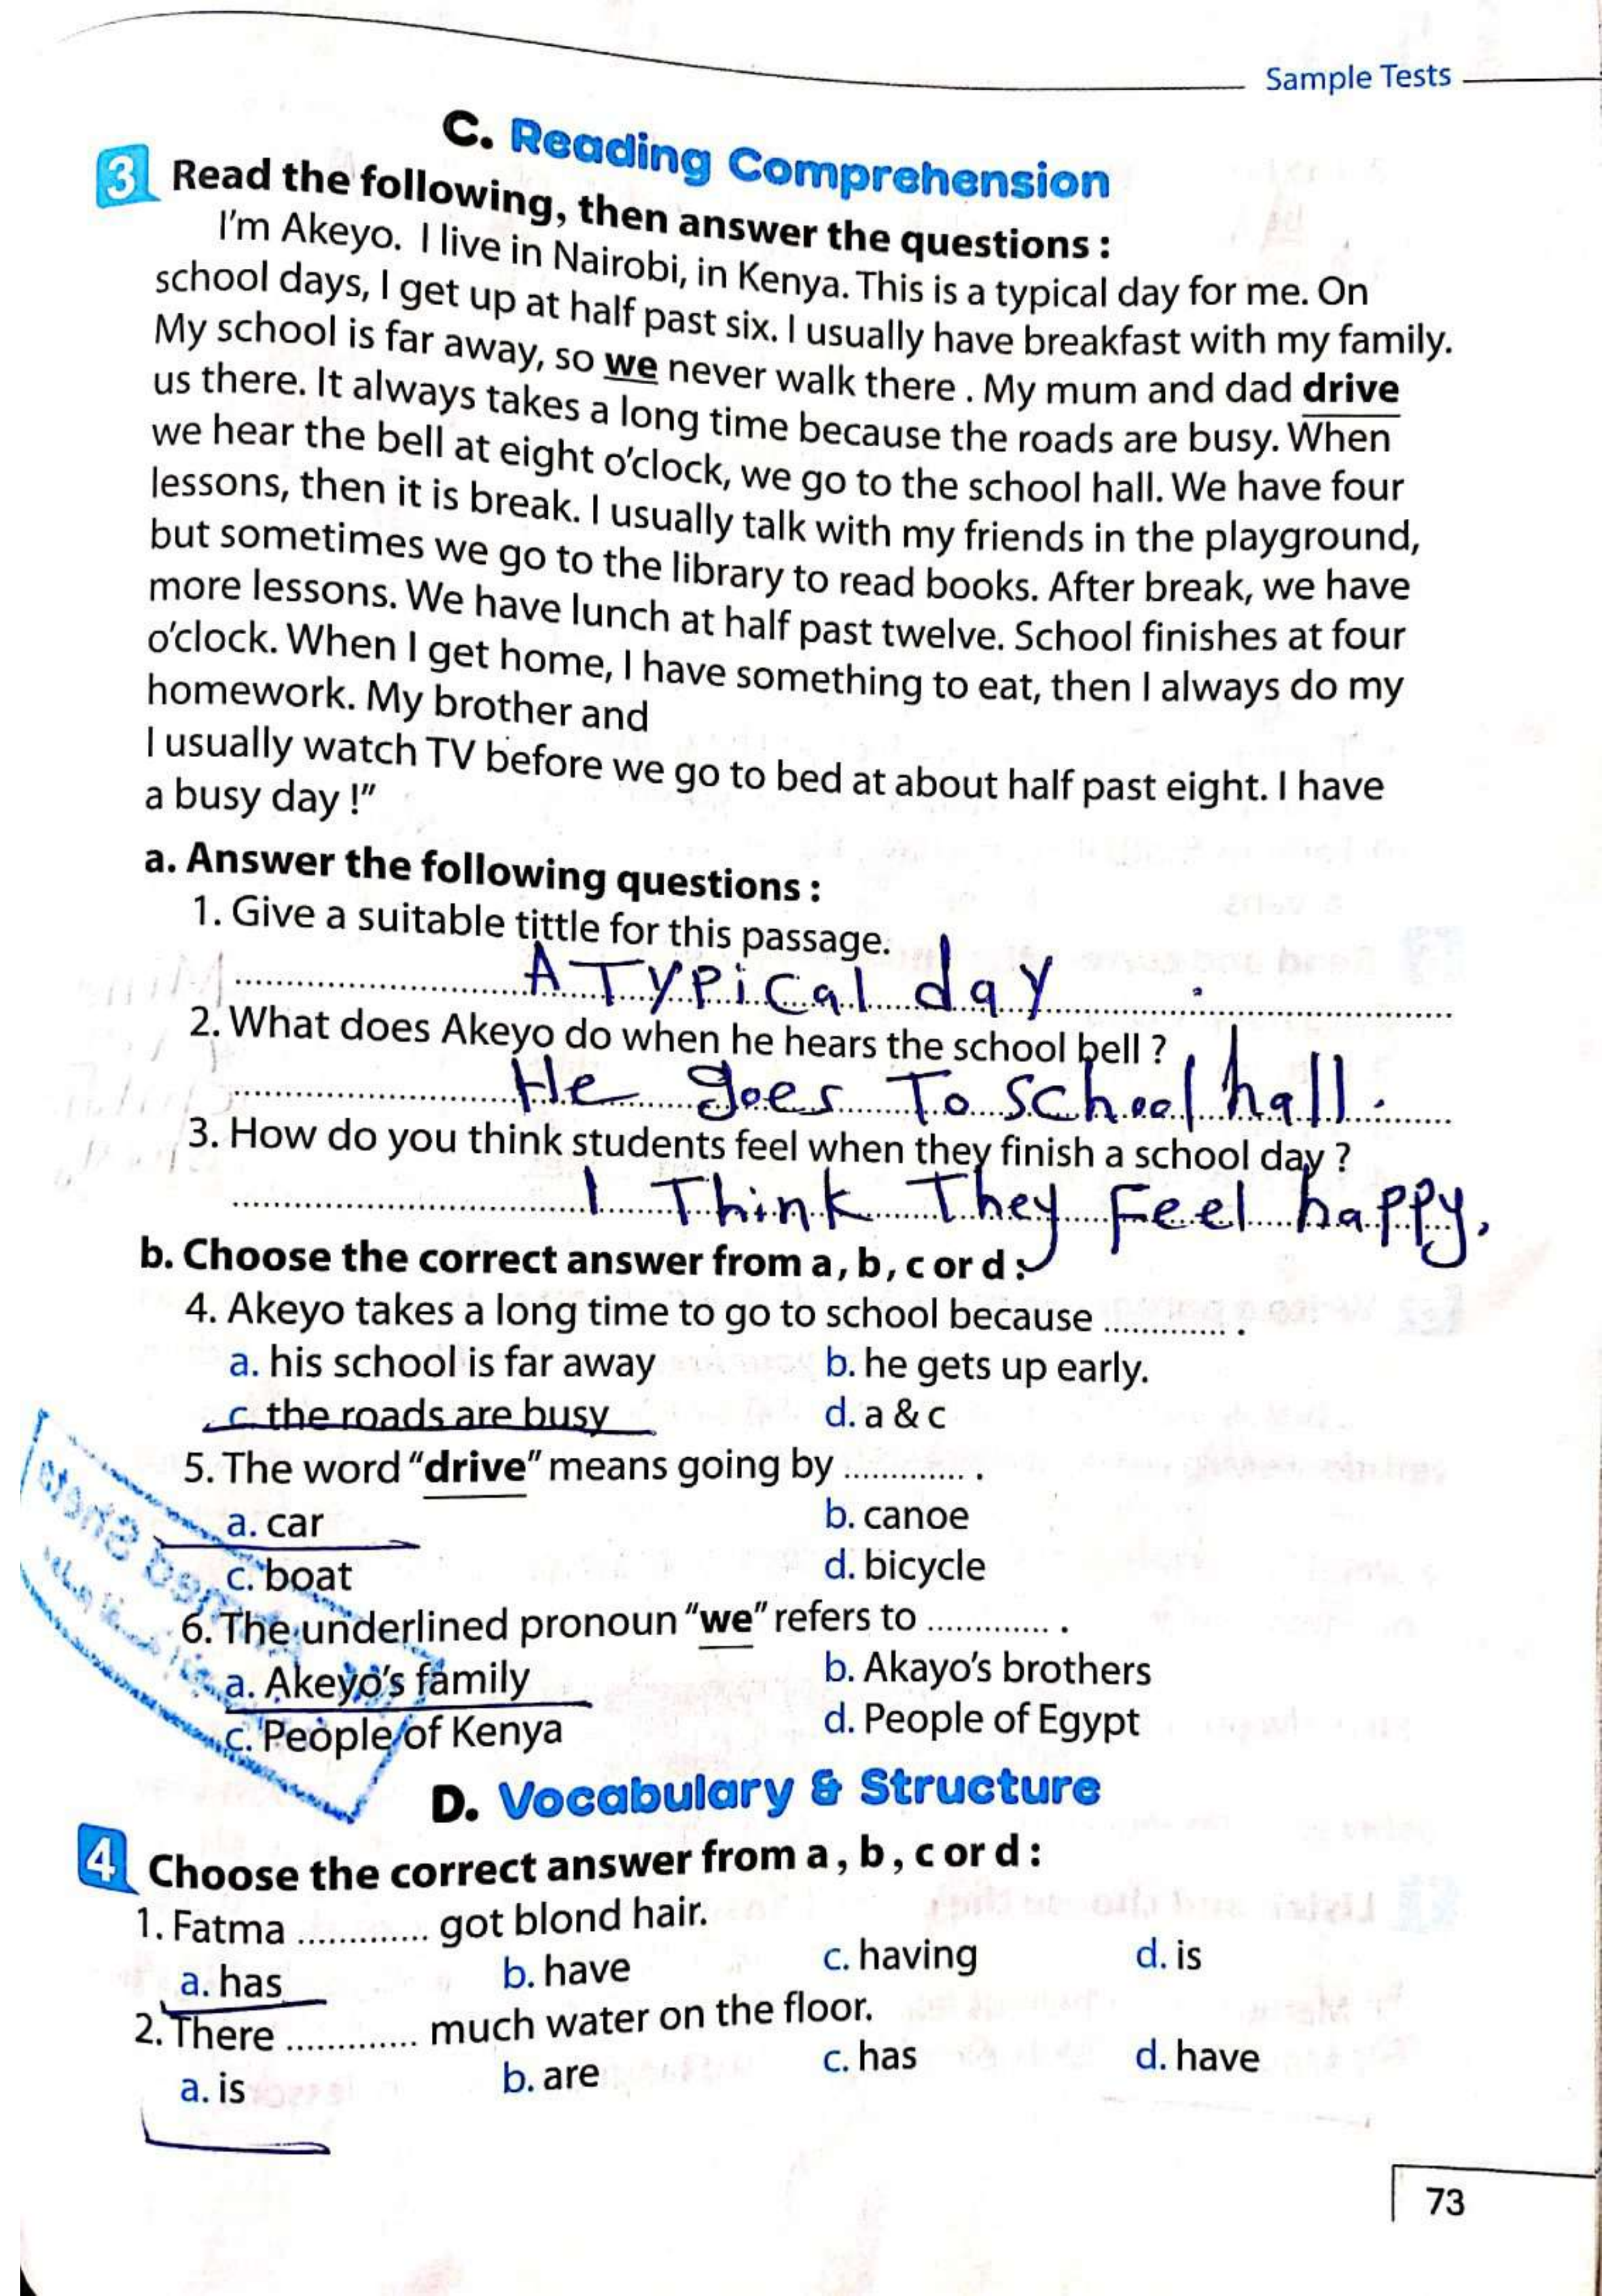 Sample Tests
C. Reading Comprehension
3 Read the following, then answer the questions :
I'm Akeyo. I live in Nairobi, in Kenya. This is a typical day for me. On
school days, I get up at half past six. I usually have breakfast with my family.
My school is far away, so we never walk there . My mum and dad drive
us there. It always takes a long time because the roads are busy. When
we hear the bell at eight o'clock, we go to the school hall. We have four
lessons, then it is break. I usually talk with my friends in the playground,
but sometimes we go to the library to read books. After break, we have
more lessons. We have lunch at half past twelve. School finishes at four
o'clock. When I get home, I have something to eat, then I always do my
homework. My brother and
I usually watch TV before we go to bed at about half past eight. I have
a busy day !"
a. Answer the following questions :
1. Give a suitable tittle for this passage.
A Typical day .
2. What does Akeyo do when he hears the school bell ?
He goes To school hall .
3. How do you think students feel when they finish a school day ?
I Think They Feel happy.
b. Choose the correct answer from a , b , c or d :
4. Akeyo takes a long time to go to school because ............. .
a. his school is far away b. he gets up early.
c. the roads are busy d. a & c
5. The word "drive" means going by ............. .
a. car b. canoe
c. boat d. bicycle
6. The underlined pronoun "we" refers to ............. .
a. Akeyo's family b. Akayo's brothers
c. People of Kenya d. People of Egypt
D. Vocabulary & Structure
4 Choose the correct answer from a , b , c or d :
1. Fatma ............. got blond hair.
a. has b. have c. having d. is
2. There ............. much water on the floor.
a. is b. are c. has d. have
73